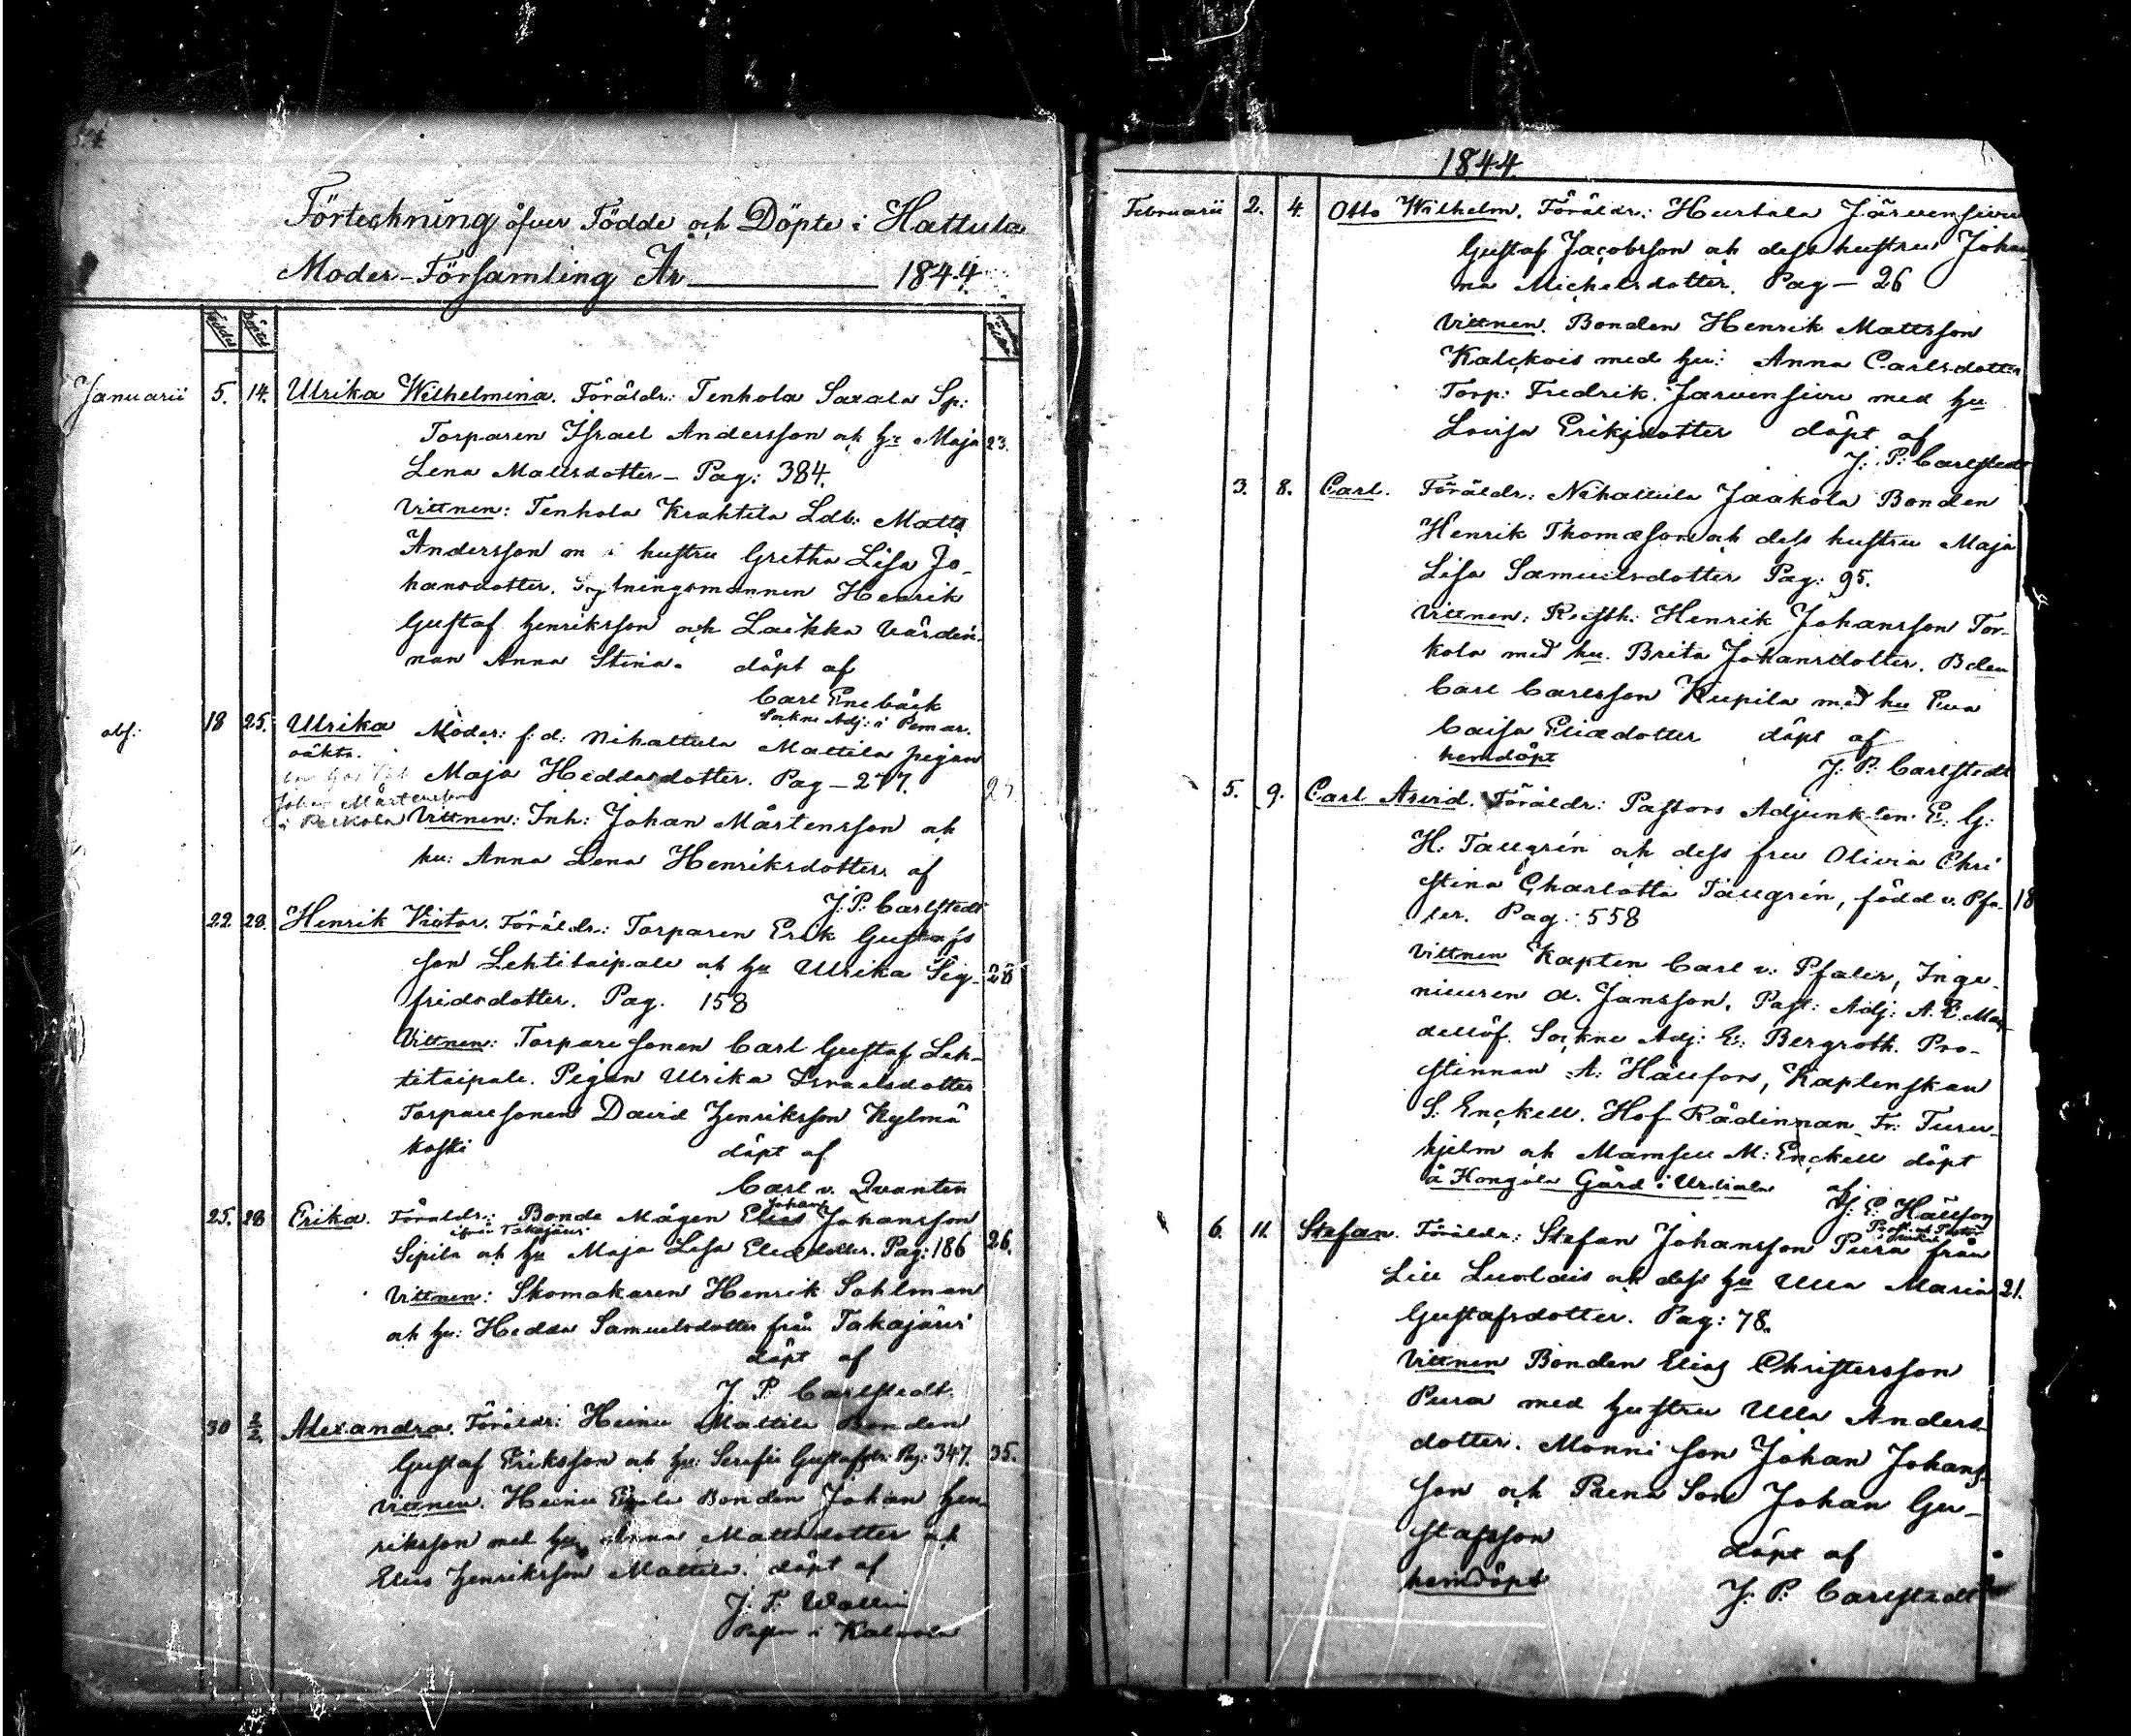 Förteckning öfver Födde och Döpte i Hattula
Moder-Församling År 1844.
Födde
Döpte
Januarii 5. 14. Ulrika Wilhelmina. Föräldr: Tenhola Saxala Sp:
Torparen Israel Andersson och hu Maja 23.
Lena Mattsdotter – Pag: 384.
Vittnen: Tenhola Krahtila Ldb: Matts
Andersson hustru Gretha Lisa Jo-
hansdotter. Henrik
Gustaf Henriksson och Laikka Värdin-
nan Anna Stina. döpt af
Carl Enebäck
Sockne Adj: i Pemar.
18 25. Ulrika Moder: f: d: Nihattula Mattila pigan
oäkta.
Maja Heddasdotter. Pag – 277.
Johan Mårtensson
i Pelkola Vittnen: Inh: Johan Mårtensson och
hu: Anna Lena Henriksdotter af
J: P: Carlstedt
22. 28. Henrik Victor. Föräldr: Torparen Erik Gustafs
son Lehtitaipale och hu Ulrika Sig- 28
fridsdotter. Pag. 158
Vittnen: Torpare sonen Carl Gustaf Leh-
titaipale. Pigan Ulrika Israelsdotter
Torpare sonen David Henriksson Kylmä
koski döpt af
Carl v. Qvanten
25. 28 Erika. Föräldr: Bonde Mågen Elias Johansson
Johan
ifrån Takajärvi
Sipila och hu Maja Lisa Eliædotter. Pag: 186 26.
Vittnen: Skomakaren Henrik Sahlman
och hu: Hedda Samuelsdotter från Takajärvi
döpt af
J. P. Carlstedt.
30 2/2. Alexandra. Föräldr: Heinu Mattila Bonden
Gustaf Eriksson och hu: Serafia Gustafsdr: Pag: 347. 35.
Vittnen. Heinu Bonden Johan Hen
riksson med hu Anna Mattsdotter och
Elias Henriksson Mattila. döpt af
J. F. Wallin
i Kalvola
1844
Februarii 2. 4. Otto Wilhelm. Föräldr: Hurtala Järvensivu
Gustaf Jacobsson och dess hustru Johan
na Michelsdotter. Pag – 26
Vittnen. Bonden Henrik Mattsson
Kalckois med hu: Anna Carlsdotter
Torp: Fredrik Jarvensivu med hu
Lovisa Eriksdotter döpt af
J: P: Carlstedt
3. 8. Carl. Föräldr: Nihattula Jaakola Bonden
Henrik Thomæson och dess hustru Maja
Lisa Samuelsdotter Pag: 95.
Vittnen: Rusth: Henrik Johansson Tor-
kola med hu. Brita Johansdotter. Bden
Carl Carlsson Kupila med hu Eva
Caisa Eliædotter döpt af
hemdöpt J: P: Carlstedt
5. 9. Carl Arvid. Föräldr: Pastors Adjunkten E: G:
H. Taucgrén och dess fru Olivia Chri
stina Charlotta Taucgrén, född v. Pfa- 18
ler. Pag: 558
Vittnen Kapten Carl v: Pfaler, Inge-
nieuren A. Jansson, Past: Adj: A. E.
dellöf. Sockne Adj: E: Bergroth. Pro-
stinnan A: Hæuson, Kaptenskan
S: Enckell. Hof Rådinnan Fr:
hjelm och Mamsell M: Enckell döpt
å Hongola Gård i Urdiala af
6. 11. Stefan. Föräldr: Stefan Johansson Pura från
Lill Luolais och dess hu Ulla Maria 21.
Gustafsdotter. Pag: 78.
Vittnen Bonden Elias Christersson
Pura med hustru Ulla Anders-
dotter. Monni Son Johan Johans-
son och Son Johan Gu-
stafsson döpt af
hemdöpt J: P: Carlstedt